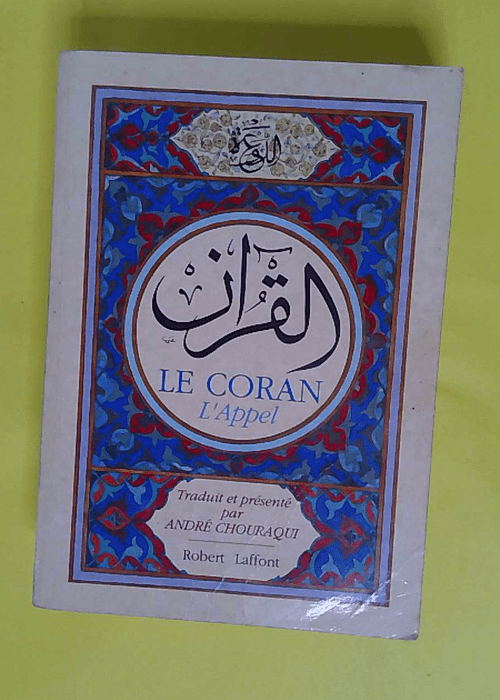 الدعوة
القرآن
LE CORAN
L'Appel
Traduit et présenté
par
ANDRÉ CHOURAQUI
Robert Laffont